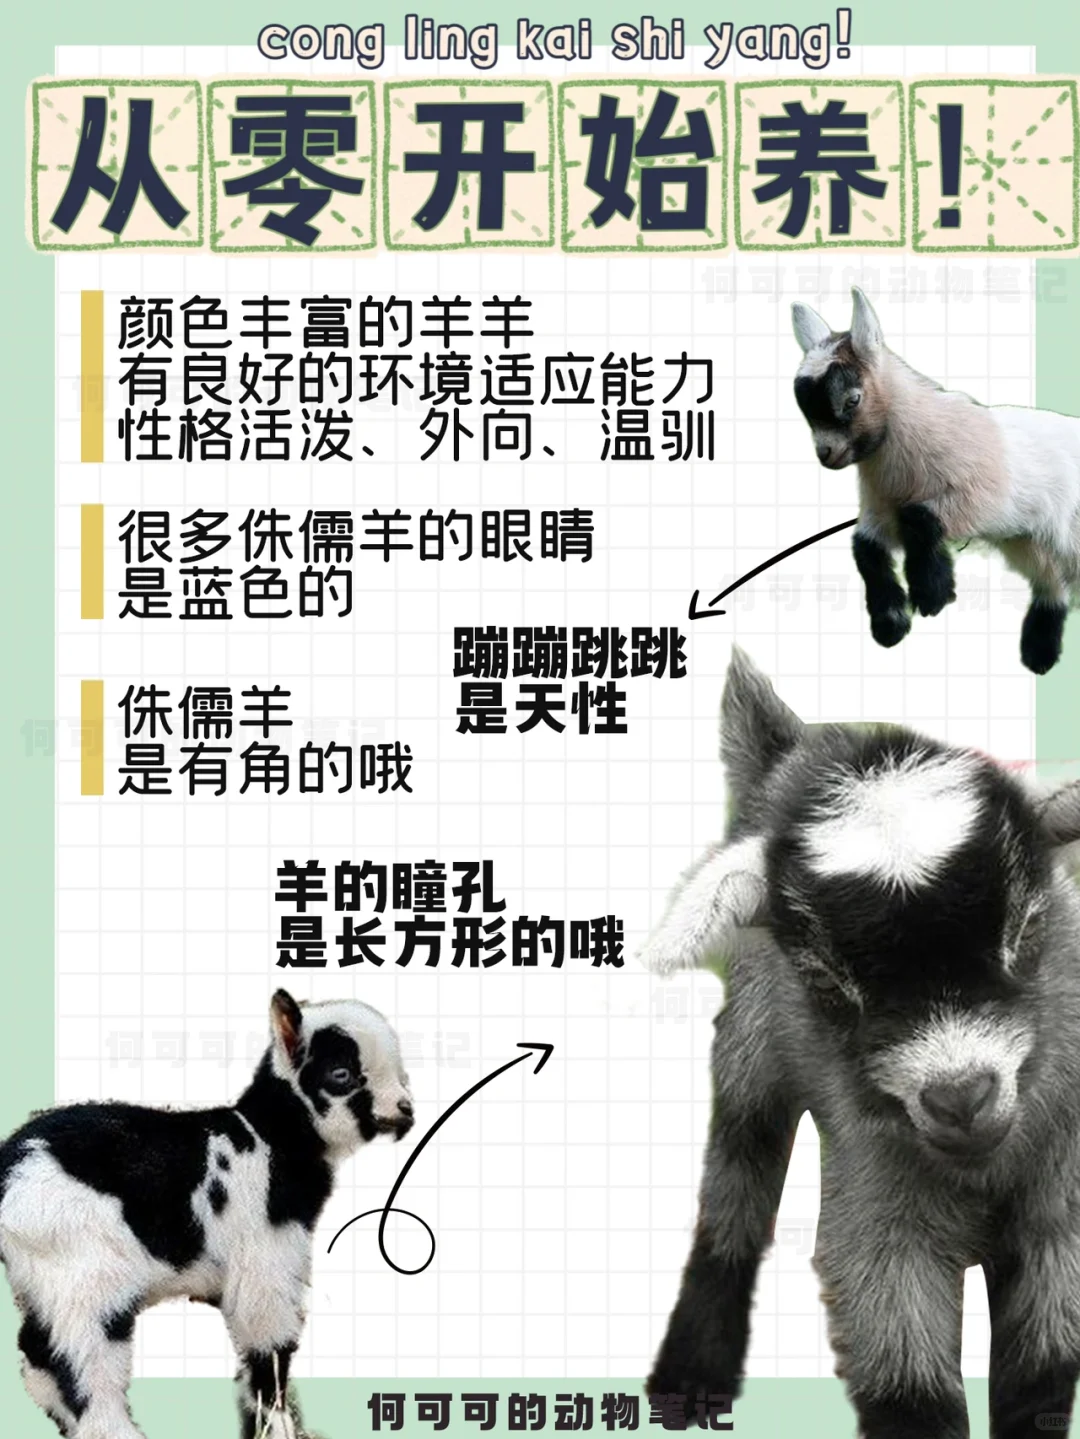 cong ling kai shi yang!
从零开始养!
何可可的动物笔记
颜色丰富的羊羊
有良好的环境适应能力
性格活泼、外向、温驯
很多侏儒羊的眼睛
是蓝色的
蹦蹦跳跳
是天性
侏儒羊
是有角的哦
羊的瞳孔
是长方形的哦
何可可的动物笔记
小红书